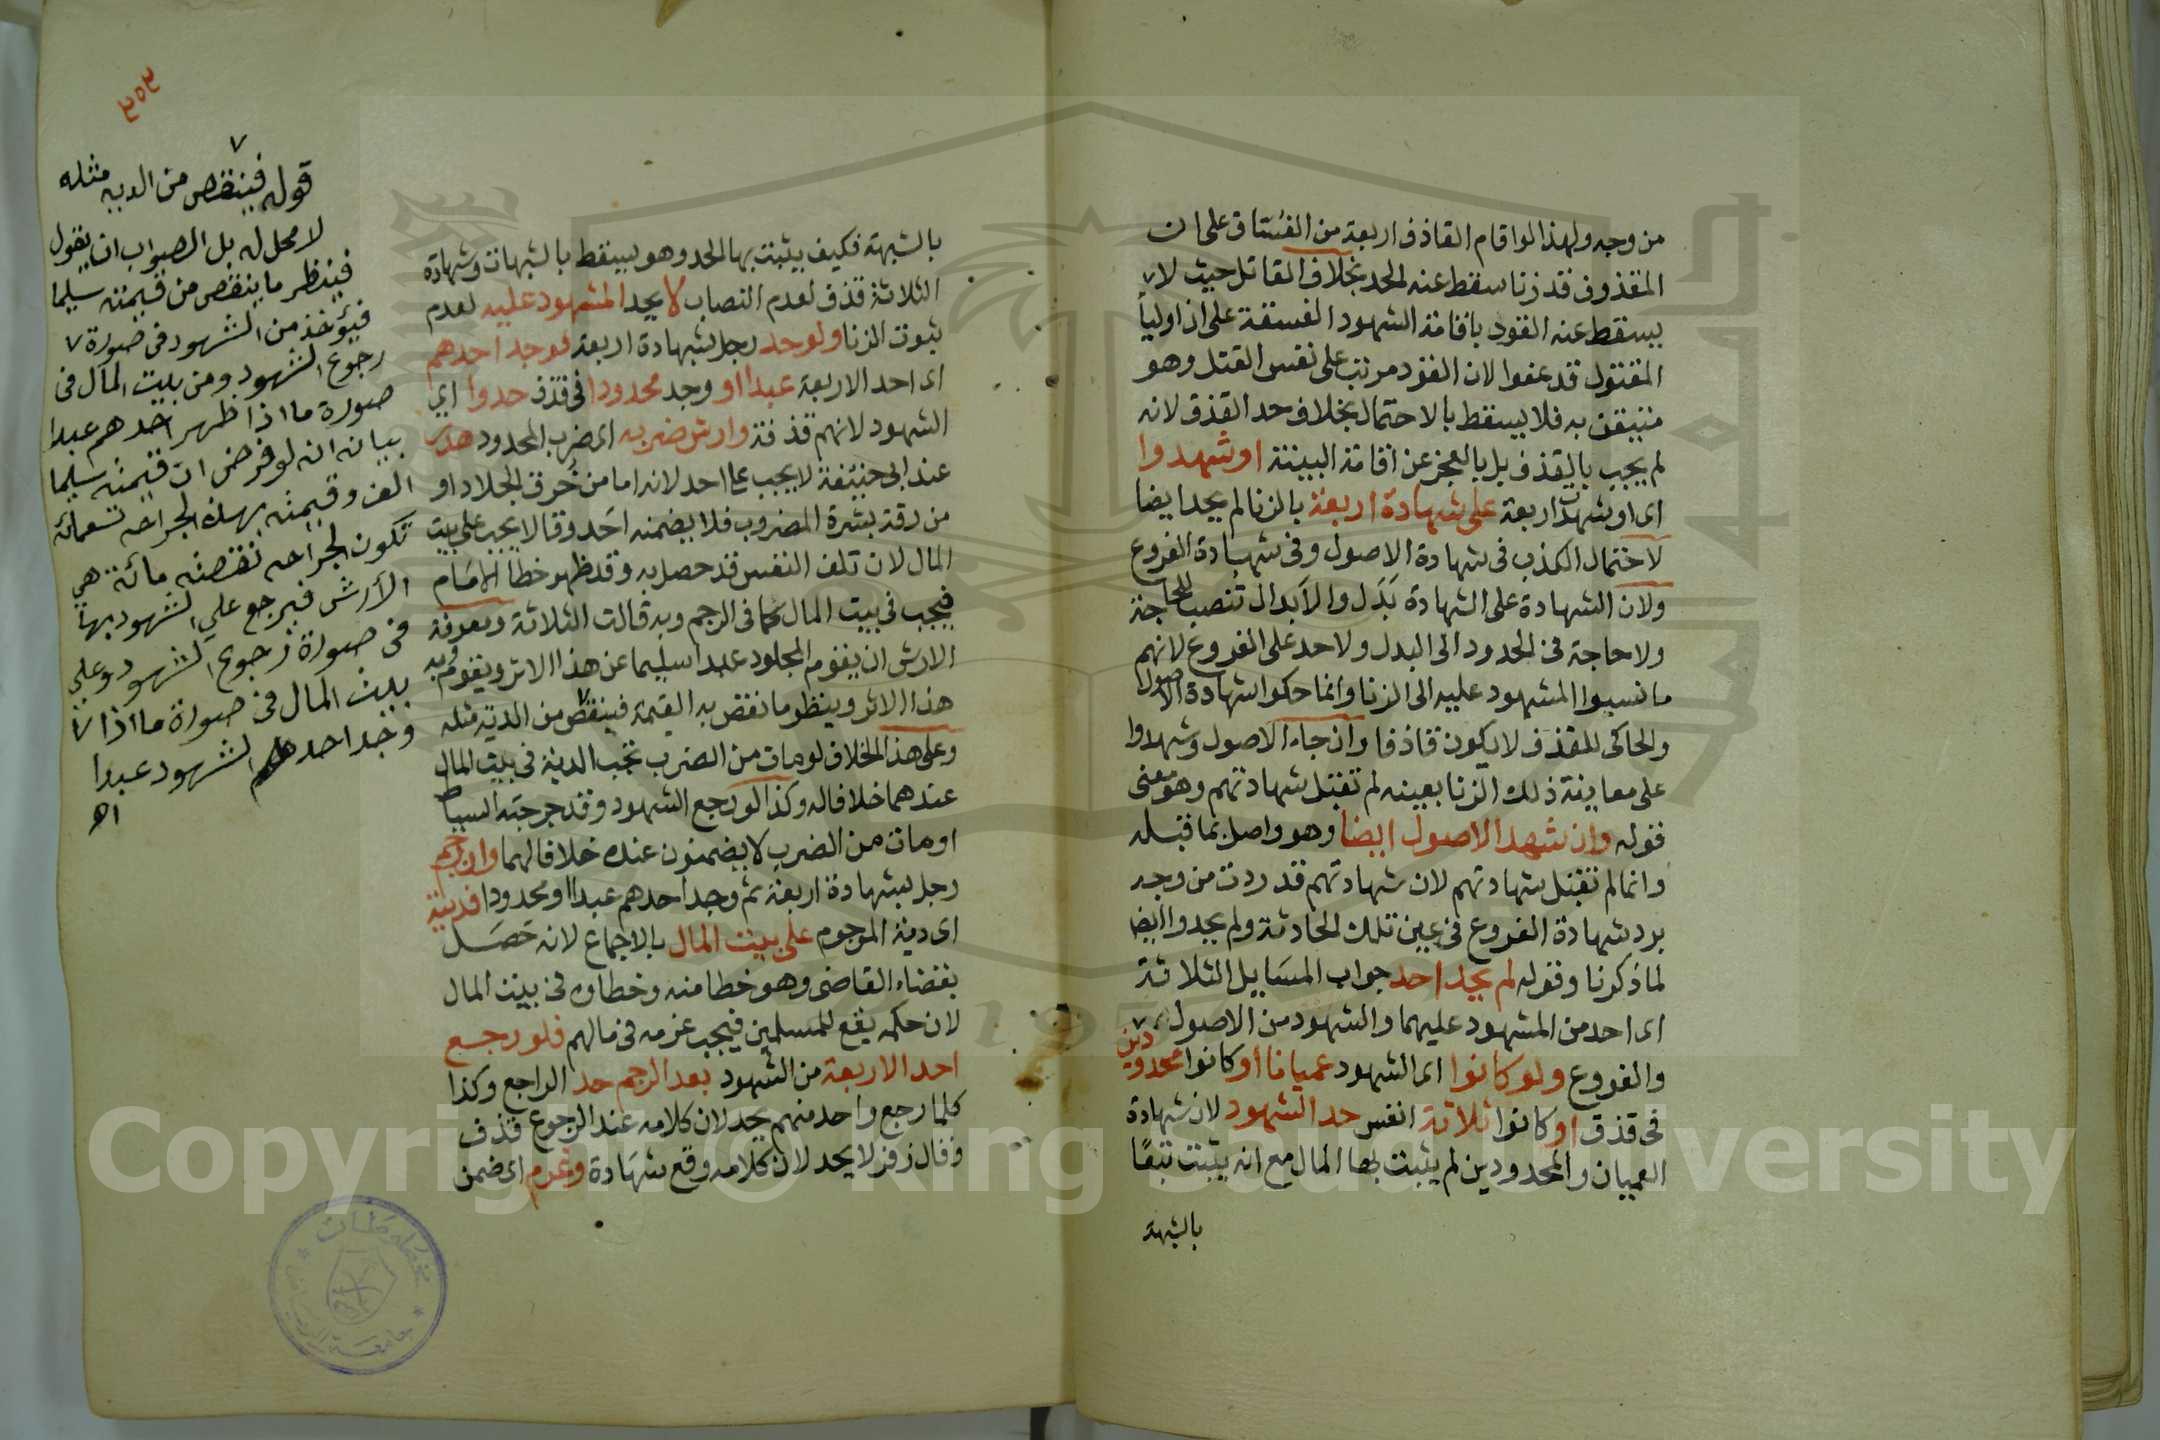 من وجه ولهذا لو اقام القاذف اربعة من الفساق على ان
المقذوف قد زنا سقط عنه الحد بخلاف القاتل حيث لا
يسقط عنه القود باقامة الشهود الفسقة على ان اولياء
المقتول قد عفوا لان القود مرتب على نفس القتل وهو
متيقن به فلا يسقط بالاحتمال بخلاف حد القذف لانه
لم يجب بالقذف بل بالعجز عن اقامة البينة او شهدوا
اى او شهدت اربعة على شهادة اربعة بالزنا لم يحد ايضا
لاحتمال الكذب فى شهادة الاصول وفى شهادة الفروع
ولان الشهادة على الشهادة بَدَل والاَبدال تُنصب للحاجة
ولا حاجة فى الحدود الى البدل ولا حد على الفروع لانهم
ما نسبوا المشهود عليه الى الزنا وانما حكوا شهادة الاصول
والحاكى للقذف لا يكون قاذفا وان جاء الاصول وشهدوا
على معاينة ذلك الزنا بعينه لم تقبل شهادتهم وهو معنى
قوله وان شهد الاصول ايضا وهو واصل بما قبله
وانما لم تقبل شهادتهم لان شهادتهم قد ردت من وجه
برد شهادة الفروع فى عين تلك الحادثة ولم يحدوا ايضا
لما ذكرنا وقوله لم يحد احد جواب المسَايل الثلاثة
اى احد من المشهود عليهما والشهود من الاصول
والفروع ولو كانوا اى الشهود عميانا او كانوا محدودين
فى قذف او كانوا ثلاثة انفس حد الشهود لان شهادة
العميان والمحدودين لم يثبت بها المال مع انه يثبت تبعًا
بالشبهة
بالشبهة فكيف يثبت بها الحد وهو يسقط بالشبهات وشهادة
الثلاثة قذف لعدم النصاب لا يحد المشهود عليه لعدم
ثبوت الزنا ولو حد رجل بشهادة اربعة فوجد احدهم
اى احد الاربعة عبدا او وجد محدودا فى قذف حدوا اى
الشهود لانهم قذفة وارش ضربه اى ضرب المحدود هدر
عند ابى حنيفة لا يجب على احد لانه اما من خُرق الجلاد او
من رقة بشرة المضروب فلا يضمنه احَد وقالا يجب على بيت
المال لان تلف النفس قد حصل به وقد ظهر خطا الامَام
فيجب فى بيت المال كما فى الرجم وبه قالت الثلاثة ومعرفة
الارش ان يقوم المجلود عبدا سليما عن هذا الاثر ويقوم وبه
هذا الاثر وينظر ما نقص به القيمة فينقص من الدية مثله
وعلى هذا الخلاف لو مات من الضرب تجب الدية فى بيت المال
عندهما خلافا له وكذا لو رجع الشهود وقد جرحته السياط
او مات من الضرب لا يضمنون عنده خلافا لهما وان رجم
رجل بشهادة اربعة ثم وجد احدهم عبدا او محدودا فديته
اى دية المرجوم على بيت المال بالاجماع لانه حَصَل
بقضاء القاضى وهو خطا منه وخطاوه فى بيت المال
لان حكمه يقع للمسلمين فيجب غرمه فى مالهم فلو رجع
احد الاربعة من الشهود بعد الرجم حد الراجع وكذا
كلما رجع واحد منهم يحد لان كلامه عند الرجوع قذف
وقال زفر لا يحد لان كلامه وقع شهَادة وغرم اى ضمن
قوله فينقص من الدية مثله
لا محل له بل الصواب ان يقول
فينظر ما ينقص من قيمته سليما
فيؤخذ من الشهود فى صورة
رجوع الشهود ومن بيت المال فى
صورة ما اذا ظهر احدهم عبدا
بيانه انه لو فرض ان قيمته سليما
الف وقيمته بهذه الجراحه تسعمائة
تكون الجراحه نقصته مائة هى
الارش فيرجع على الشهود بها
فى صورة رجوع الشهود وعلى
بيت المال فى صورة ما اذا
وجد احد الشهود عبدا
اه
Copyright © King Saud University
1957